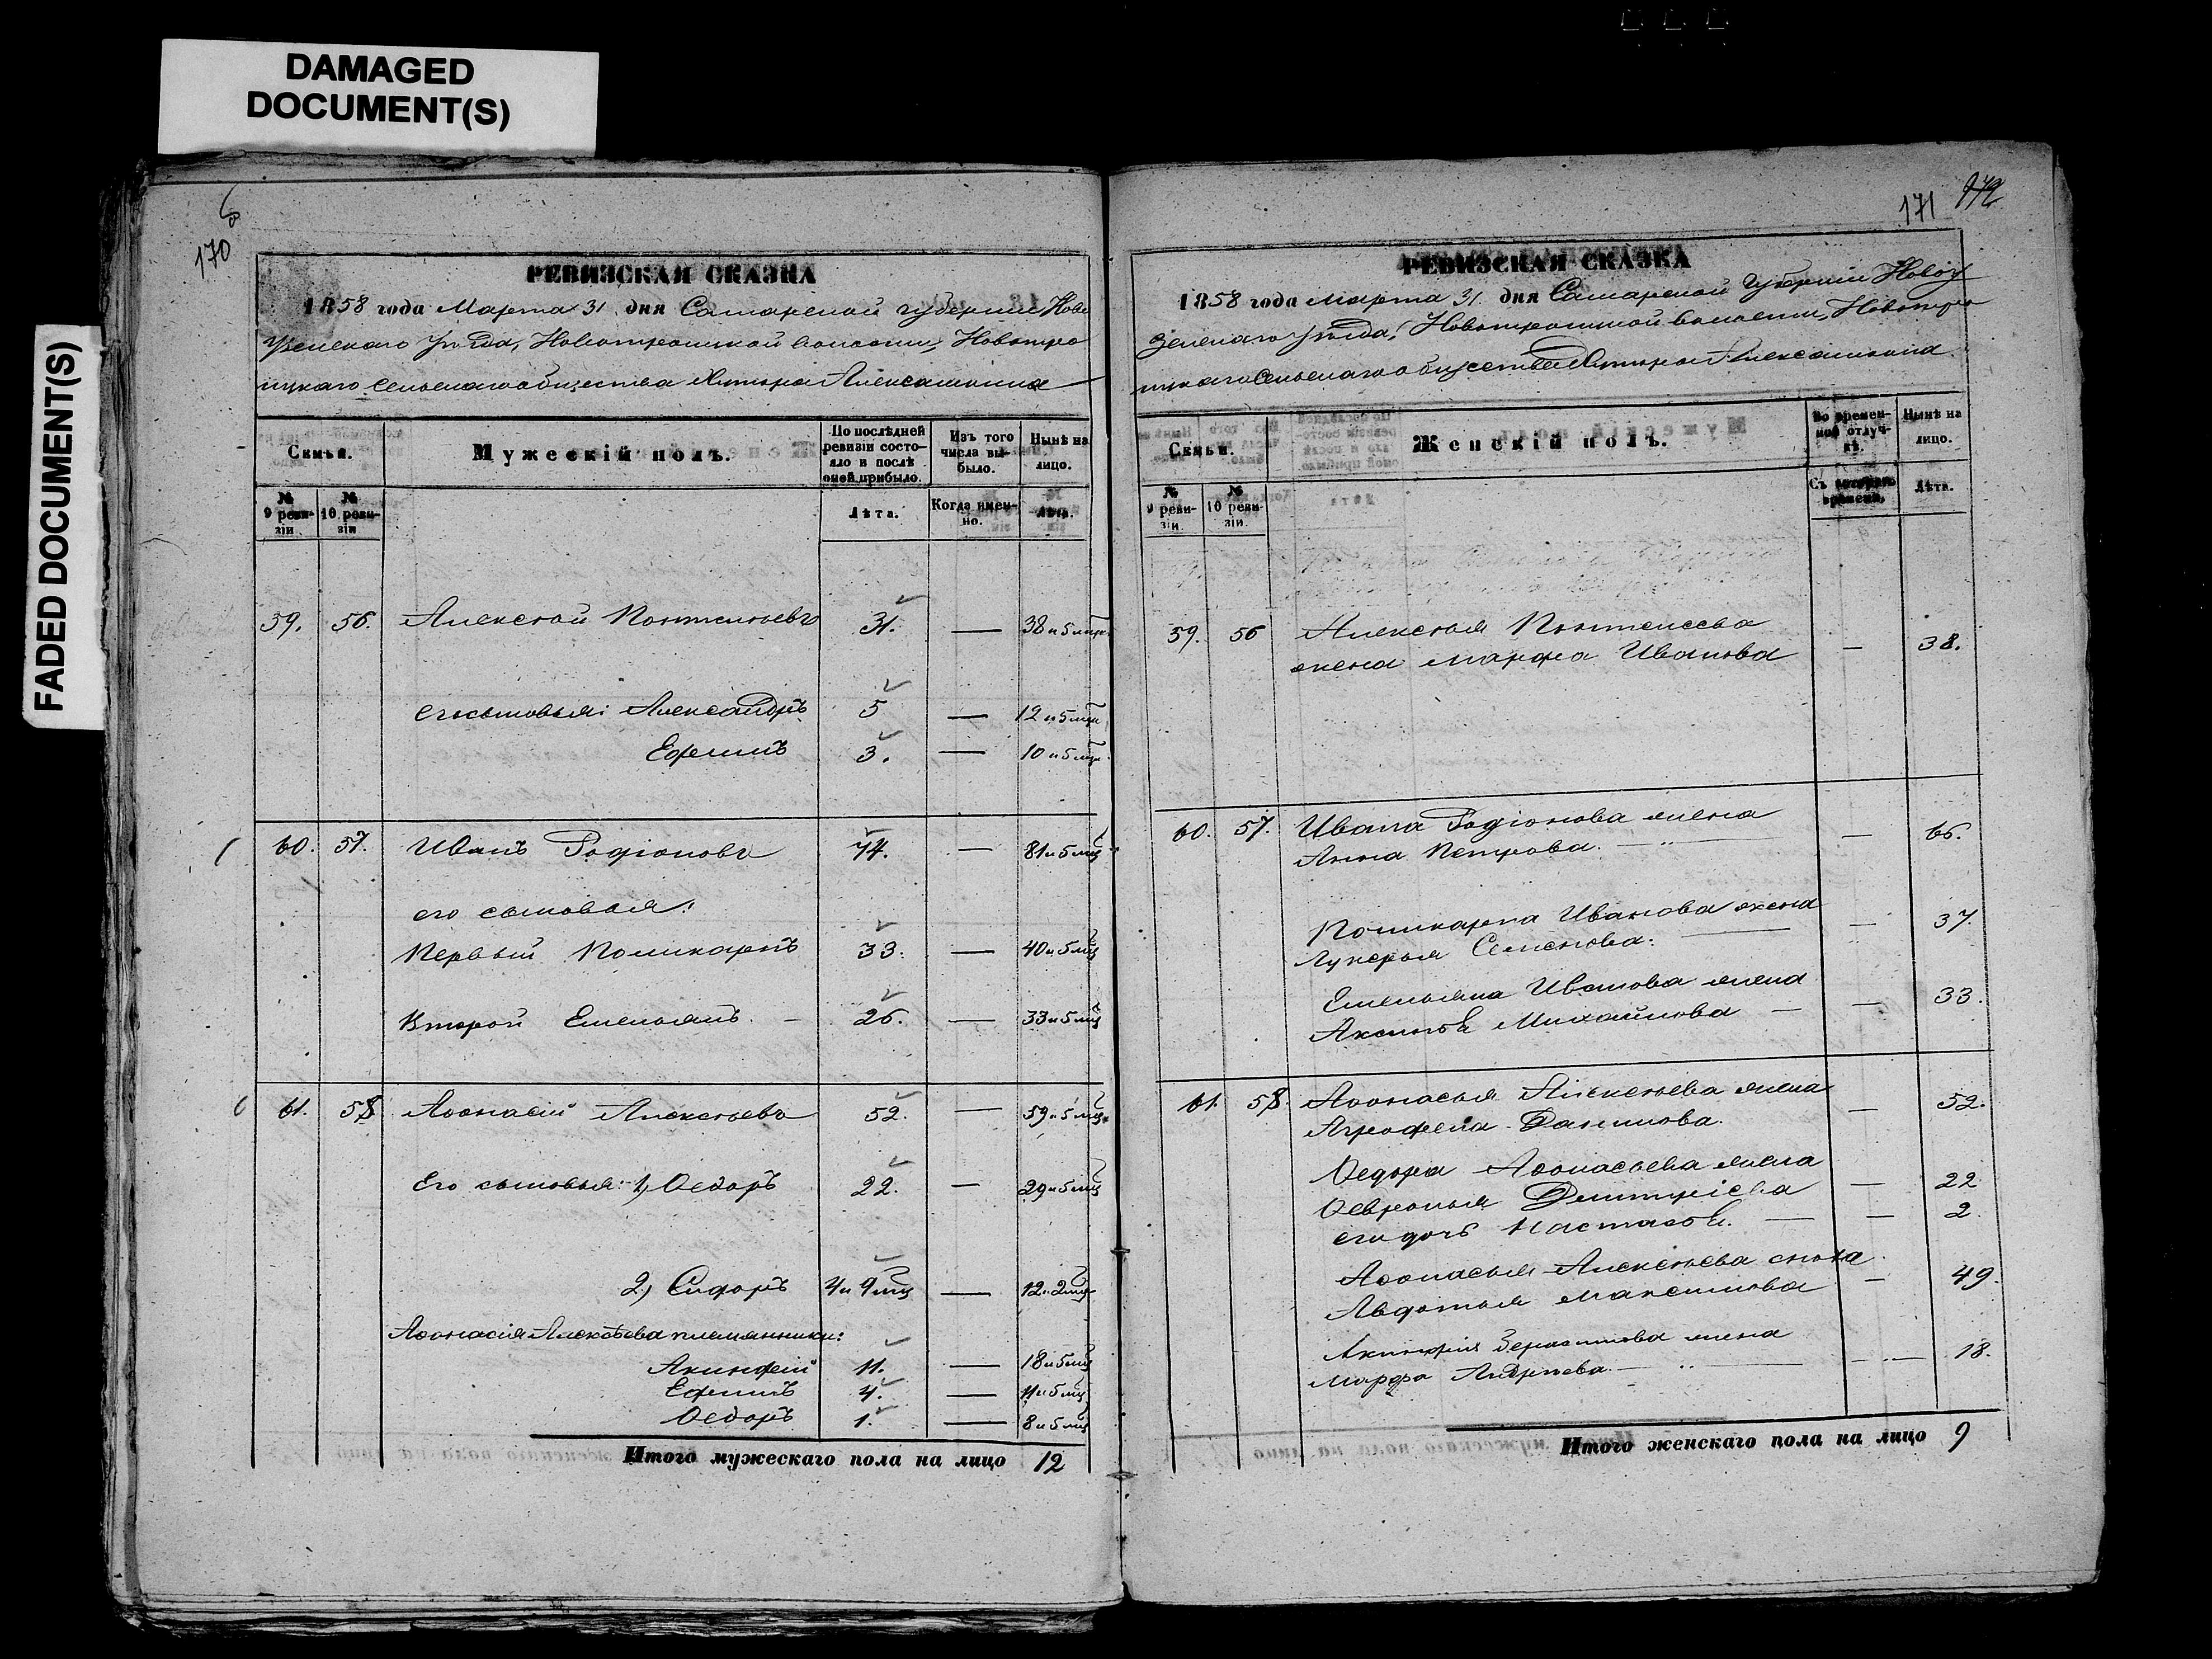 DAMAGED
DOCUMENT(S)
FADED DOCUMENT(S)
170
РЕВИЗСКАЯ СКАЗКА
1858 года Марта 31 дня Самарской губернии Ново
Узенскаго Уѣзда, Новотроицкой волости, Новотро
ицкаго сельскаго общества Хутора Алексашкина
Семьи.
Мужескій полъ.
По послѣдней ревизіи состояло и послѣ оной прибыло.
Изъ того числа выбыло.
Нынѣ на лицо.
№ 9 ревизіи
№ 10 ревизіи
Лѣта.
Когда именно.
Лѣта.
59. 56. Алексѣй Понтелѣевъ 31. — 38 и 5 мцы
его сыновья: Александръ 5 — 12 и 5 мцы
Ефимъ 3. — 10 и 5 мцы
60. 57. Иванъ Родіоновъ 74. — 81 и 5 мцы
его сыновья:
Первый Поликарпъ 33. — 40 и 5 мцы
Второй Емельянъ. — 26. — 33 и 5 мцы
61. 58 Афонасій Алексѣевъ 52. — 59 и 5 мцы
Его сыновья: 1, Ѳедоръ 22. — 29 и 5 мцы
2, Сидоръ 4 и 9 мцы — 12 и 2 мцы
Афонасія Алексѣева племянники:
Акинфій 11. — 18 и 5 мцы
Ефимъ 4. — 11 и 5 мцы
Ѳедоръ 1. — 8 и 5 мцы
Итого мужескаго пола на лицо 12
171
РЕВИЗСКАЯ СКАЗКА
1858 года Марта 31 дня Самарской Губерніи Новоу
зенскаго уѣзда, Новотроицкой волости, Новотро
ицкаго Сельскаго общества Хутора Алексашкина.
Семьи.
Женскій полъ.
Во временной отлучкѣ.
Нынѣ на лицо.
№ 9 ревизіи.
№ 10 ревизіи.
Съ котораго времени.
Лѣта.
59. 56 Алексѣя Понтелеева
жена Марфа Иванова — 38.
60. 57. Ивана Родіонова жена
Анна Петрова. — 66.
Поликарпа Иванова жена
Лукерья Семенова. — 37.
Емельяна Иванова жена
Аксинья Михайлова — 33.
61. 58. Афонасья Алексѣева жена
Агрофена Данилова. — 52.
Ѳедора Афонасьева жена
Ѳевронья Дмитріева — 22.
его дочь Настасья. — 2.
Афонасья Алексѣева сноха
Авдотья Максимова — 49.
Акинфія жена
Марфа Андреева. — 18.
Итого женскаго пола на лицо 9